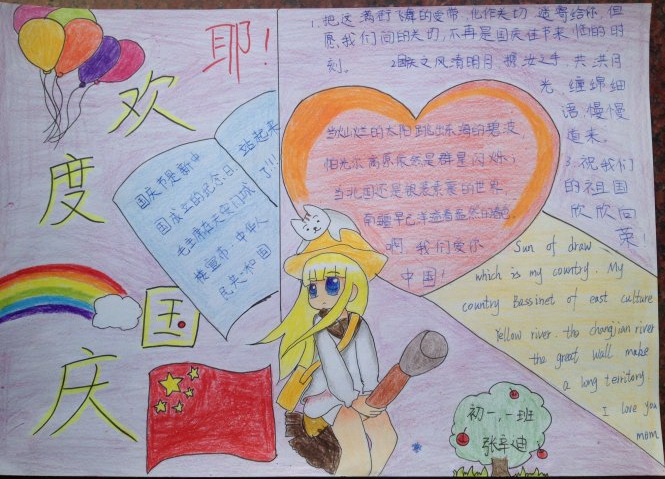 欢度国庆
耶!
1、把这满街飞舞的爱带,化作关切,遥寄给你.但
愿,我们间的关切,不再是国庆佳节来临的时
刻。 2国庆之风清明月.携汝之手,共洪月
光,缠绵细
语.慢慢
道来。
3、祝我们
的祖国
欣欣向
荣!
国庆节是新中
国成立的纪念日
毛主席在天安门城
楼宣布:中华人
民共和国
站起来
了!
当灿烂的太阳跳出东海的碧波,
帕米尔高原依然是群星闪烁;
当北国还是银装素裹的世界,
南疆早已洋溢着盎然的春色.
啊,我们爱你
中国!
Sun of draw,
which is my country. My
country Bassinet of east culture
Yellow river. the changjian river
the great wall make
a long territory.
I love you
mom
初一,一班